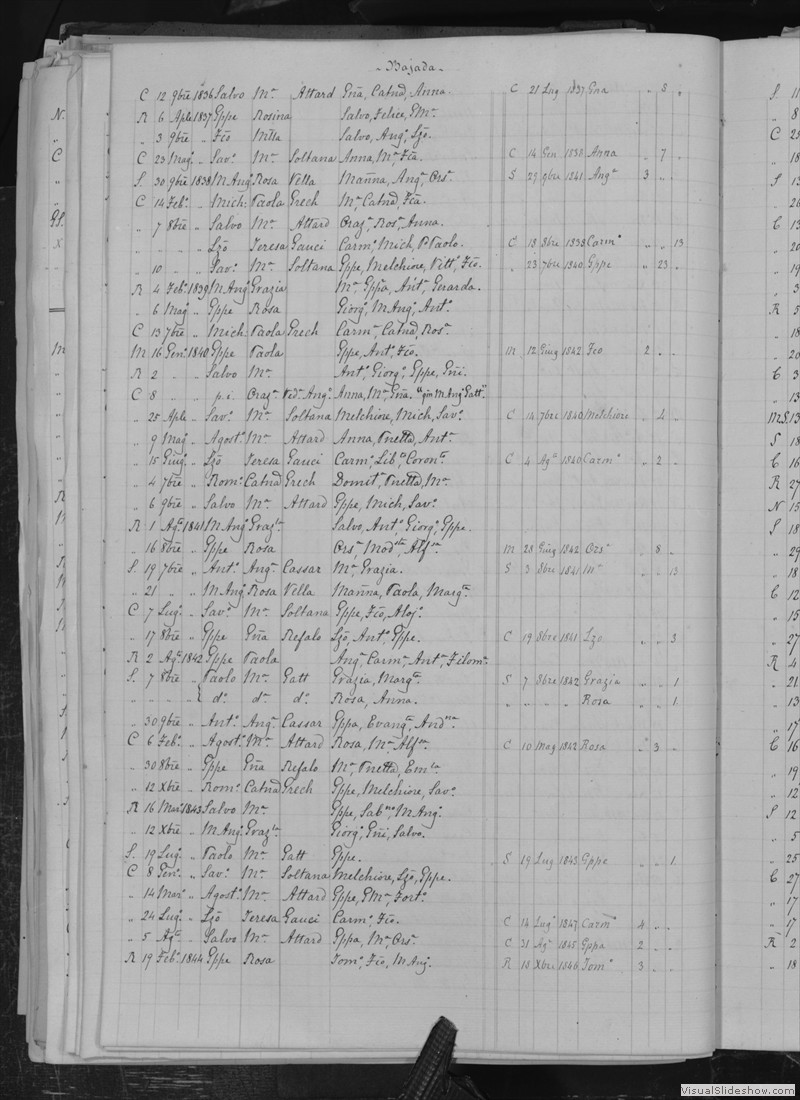 - Bajada -
C 12 9bre 1836 Salvo Mª Attard Gña, Catnd, Anna. C 21 Lug 1837 Gna " 8 "
R 6 Aple 1837 Gppe Rosina Salvo, Felice, PMª.
" 3 9bre " Fćo Salvo, Angº, Lzō.
C 23 Magº " Savº Mª Soltana Anna, Mª, Fćā. C 14 Gen 1838 Anna " 7 "
S. 30 9bre 1838 M Angº Rosa Vella Mañna, Angª, Orsª. S 29 9bre 1841 Angª 3 " "
C 14 Febº " Mich: Paola Grech Mª, Catnd, Fćā.
" 7 8bre " Salvo Mª Attard Grazª, Rosª, Anna.
" " " " Lzō Teresa Gauci Carmº, Mich, P. Paolo. C 18 8bre 1838 Carmº " " 13
" 10 " " Savº Mª Soltana Gppe, Melchiore, Vittº, Fćo. " 23 7bre 1840 Gppe " 23 "
R 4 Febº 1839 M Angº Grazia Mª, Gppa, Antª, Gerarda.
" 6 Magº " Gppe Rosa Giorgº, M Angº, Antº.
C 13 7bre " Mich: Paola Grech Carmª, Catnd, Rosª.
M 16 Genº 1840 Gppe Paola Gppe, Antº, Fćo. M 12 Giug 1842 Fćo 2 " "
R 2 " " Salvo Mª. Antº, Giorgº, Gppe, Gñi.
C 8 " " p.i. Grazª Vedª Angº Anna, Mª, Gña. "qm M Angº Gatt".
" 25 Aple " Savº Mª Soltana Melchiore, Mich, Savº. C 14 7bre 1840 Melchiore " 4 "
" 9 Mag " Agostº Mª Attard Anna, Pietta, Antª.
" 15 Giugº " Lzō Teresa Gauci Carmº, Libª, Coronª. C 4 Agº 1840 Carmº " 2 "
" 4 7bre " Romº Catnd Grech Domitª, Pietta, Mª.
" 6 9bre " Salvo Mª Attard Gppe, Mich, Savº.
R 1 Agº 1841 M Angº Grazª Salvo, Antº, Giorgº, Gppe.
" 16 8bre " Gppe Rosa Orsª, Modª, Alfª. M 28 Giug 1842 Orsª " 8 "
S. 19 7bre " Antº Angª Cassar Mª, Grazia. S 3 8bre 1841 Mª " " 13
" 21 " " M Angº Rosa Vella Mañna, Paola, Margª.
C 7 Lugº " Savº Mª Soltana Gppe, Fćo, Alojº.
" 17 8bre " Gppe Gña Refalo Lzō, Antº, Gppe. C 19 8bre 1841 Lzo " " 3
R 2 Agº 1842 Gppe Paola Angª, Carmª, Antª, Filomª.
S. 7 8bre " Paolo Mª Gatt Grazia, Margª. S 7 8bre 1842 Grazia " " 1
" " " " { dº dª dº Rosa, Anna. " " " " Rosa " " 1
" 30 9bre " Antº Angª Cassar Gppa, Evangª, Andª.
C 6 Febº " Agostº Mª Attard Rosa, Mª, Alfª. C 10 Mag 1842 Rosa " 3 "
" 30 8bre " Gppe Gña Refalo Mª, Pietta, Emª.
" 12 Xbre " Romº Catnd Grech Gppe, Melchiore, Savº.
R 16 Marº 1843 Salvo Mª. Gppe, Sabº, M Angº.
" 12 Xbre " M Angº Grazª Giorgº, Gñi, Salvo.
S. 19 Lugº " Paolo Mª Gatt Gppe. S 19 Lug 1843 Gppe " " 1
C 8 Genº " Savº Mª Soltana Melchiore, Lzō, Gppe.
" 14 Marº " Agostº Mª Attard Gppe, PMª, Fortº.
" 24 Lugº " Lzō Teresa Gauci Carmº, Fćo. C 14 Lugº 1847 Carmº 4 " "
" 5 Agº " Salvo Mª Attard Gppa, Mª, Orsª. C 31 Agº 1845 Gppa 2 " "
R 19 Febº 1844 Gppe Rosa Tomº, Fćo, M Ang. R 18 Xbre 1846 Tomº 3 " "
VisualSlideshow.com